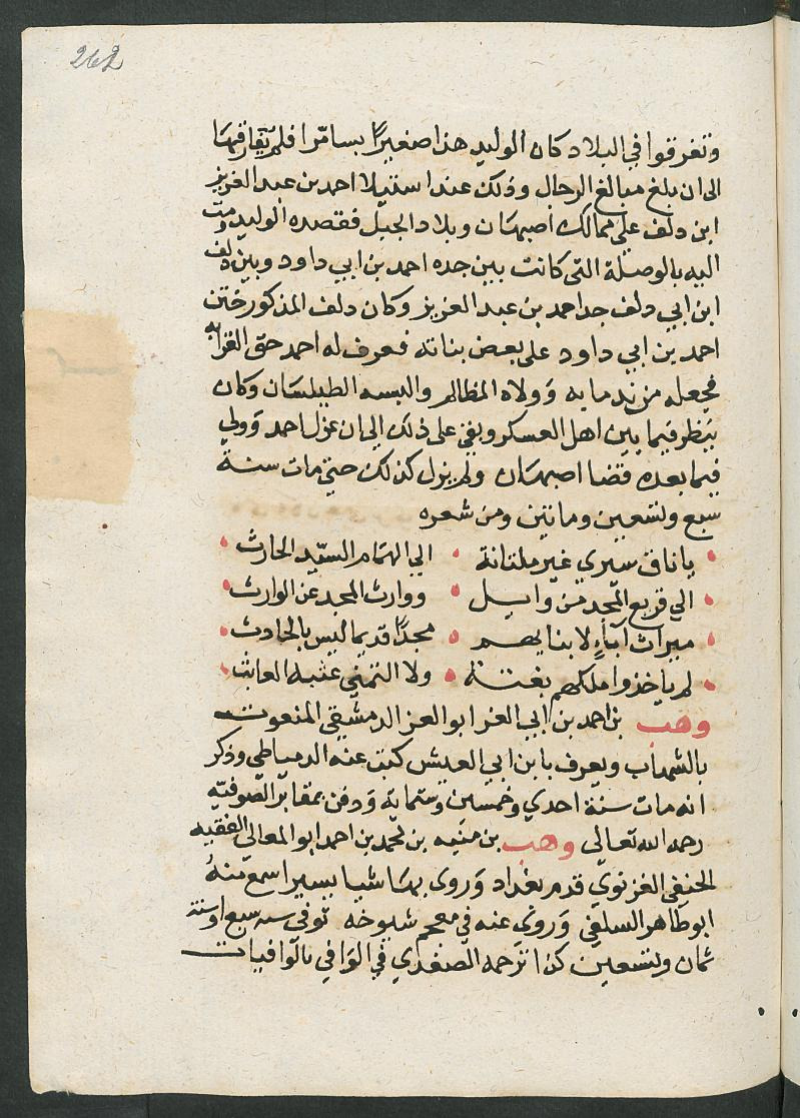 262
وتفرقوا في البلاد كان الوليد هذا صغيرًا بسامرا فلم يفارقها
الى ان بلغ مبالغ الرجال وذلك عند استيلا احمد بن عبد العزيز
ابن دلف على ممالك اصبهان وبلاد الجبل فقصده الوليد ومت
اليه بالوصلة التى كانت بين جده احمد بن ابي داود وبين دلف
ابن ابي دلف جد احمد بن عبد العزيز وكان دلف المذكور ختن
احمد بن ابي داود على بعض بناته فعرف له احمد حق القرابه
فجعله من ندمايه وولاه المظالم والبسه الطيلسان وكان
ينظر فيما بين اهل العسكر وبقي على ذلك الى ان عزل احمد وولي
فيما بعده قضا اصبهان ولم يزل كذلك حتى مات سنة
سبع وتسعين وماتين ومن شعره
ياناق سيري غير ملتانة الى الهمام السيّد الحارث
الي قريع المجد من وايل ووارث المجد عن الوارث
ميراث آباءٍ لابنايهم مجدًا قديما ليس بالحادث
لم ياخذوا ملكهم بغتة ولا التمني عثبه العابث
وهب بن احمد بن ابي العز ابو العز الدمشقي المنعوت
بالشهاب ويعرف بابن ابي العيش كتب عنه الدمياطي وذكر
انه مات سنة احدي وخمسين وستماية ودفن بمقابر الصوفيه
رحمه الله تعالى وهب بن منبه بن محمد بن احمد ابو المعالى الفقيه
الحنفي الغزنوي قدم بغداد وروى بها شيا يسيرا سمع منهُ
ابو طاهر السلفي وروى عنه في معجم شيوخه توفى سنه سبع او سنة
ثمان وتسعين كذا ترجمه الصفدي في الوافي بالوافيات